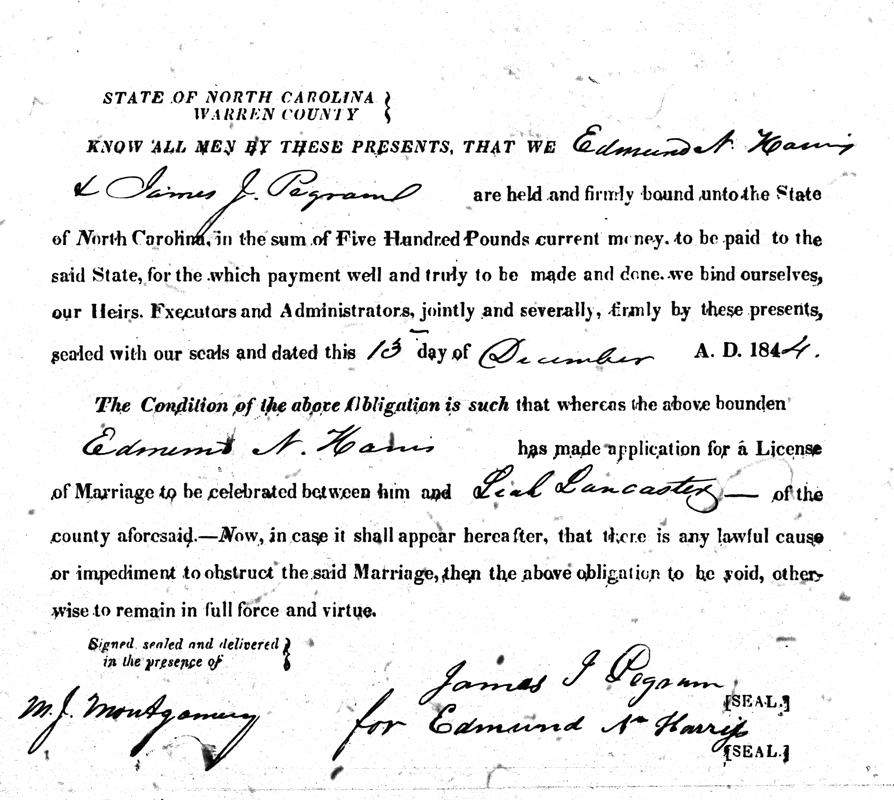 STATE OF NORTH CAROLINA
WARREN COUNTY
KNOW ALL MEN BY THESE PRESENTS, THAT WE Edmund N. Harris
& James J. Pegram are held and firmly bound unto the State
of North Carolina, in the sum of Five Hundred Pounds current money, to be paid to the
said State, for the which payment well and truly to be made and done, we bind ourselves,
our Heirs, Executors and Administrators, jointly and severally, firmly by these presents,
sealed with our seals and dated this 13 day of December A. D. 1844.
The Condition of the above Obligation is such that whereas the above bounden
Edmund N. Harris has made application for a License
of Marriage to be celebrated between him and Leah Lancaster — of the
county aforesaid.—Now, in case it shall appear hereafter, that there is any lawful cause
or impediment to obstruct the said Marriage, then the above obligation to be void, other-
wise to remain in full force and virtue.
Signed, sealed and delivered
in the presence of
James J Pegram [SEAL.]
M. J. Montgomery for Edmund N Harris
[SEAL.]